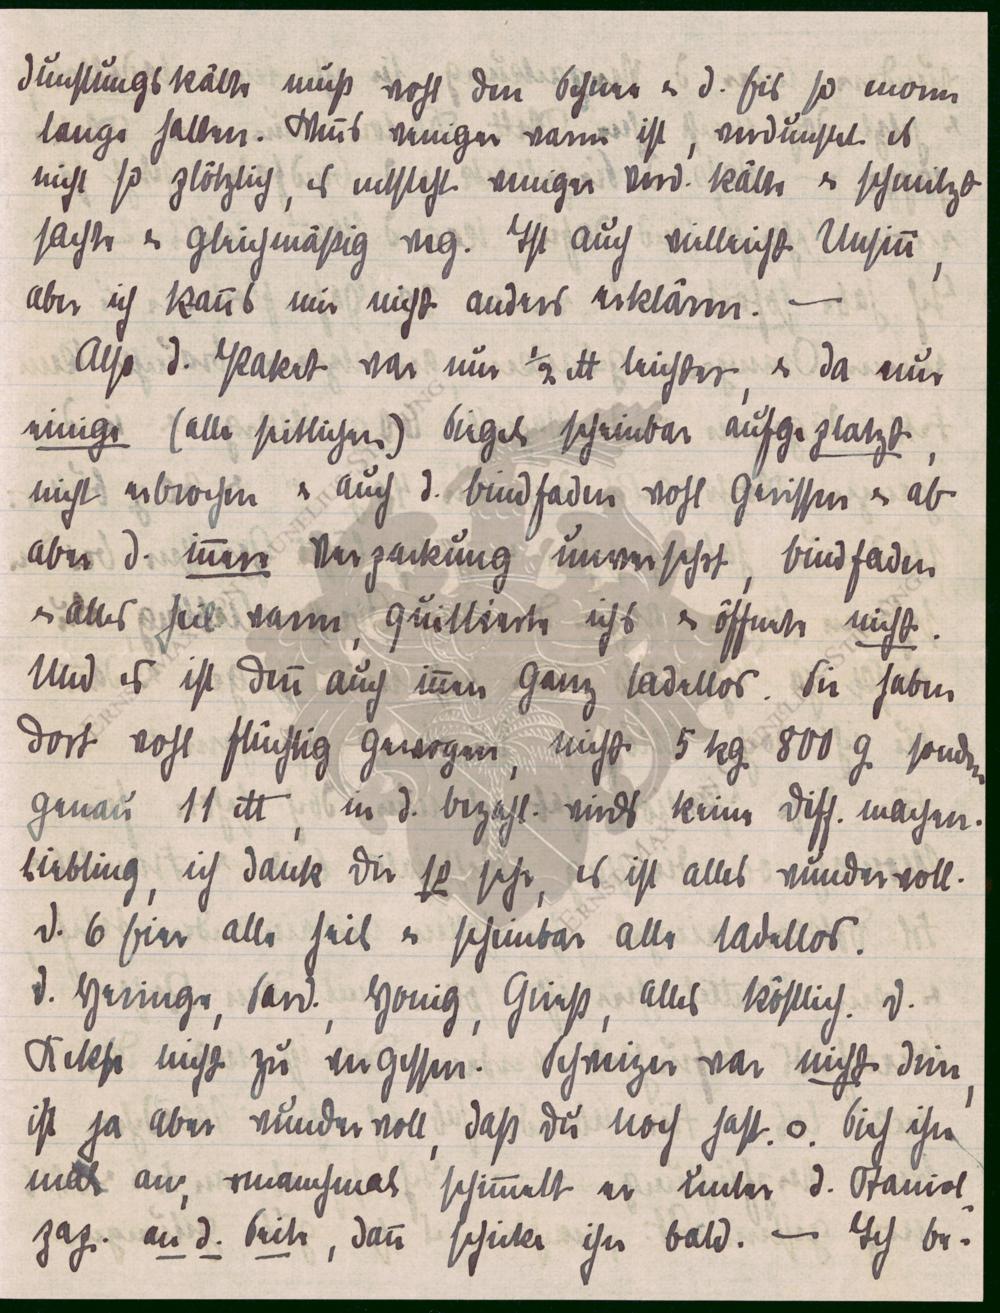 dünstungskälte muß wohl den Schnee u d. Eis so enorm
lange halten. Wenns weniger warm ist, verdunstet es
nicht so plötzlich, es entsteht weniger Verd. kälte u schmilzt
sachte u gleichmäßig weg. Ist auch vielleicht Unsin̄,
aber ich kan̄s mir nicht anders erklären. —
Also d. Paket war nur ½ ℔ leichter, u da nur
einige (alle seitlichen) Siegel scheinbar aufgeplatzt,
nicht erbrochen u auch d. Bindfaden wohl gerissen u ab
aber d. in̄ere Verpackung unversehrt, Bindfaden
u alles heil waren, quittierte ichs u öffnete nicht.
Und es ist den̄ auch in̄en ganz tadellos. Sie haben
dort wohl flüchtig gewogen, nicht 5 kg 800 g sondern
genau 11 ℔, in d. Bezahl. wirds keine Diff. machen.
Liebling, ich dank Dir so sehr, es ist alles wundervoll.
d. 6 Eier alle heil u scheinbar alle tadellos.
d. Heringe, Sard., Honig, Grieß, alles köstlich. d.
Kekse nicht zu vergessen. Schweizer war nicht drin,
ist ja aber wundervoll, daß Du noch hast. o. Sieh ihn
mal an, manchmal schim̄elt er unter d. Staniol
pap. an d. Seite, dan̄ schicke ihn bald. — Ich be-